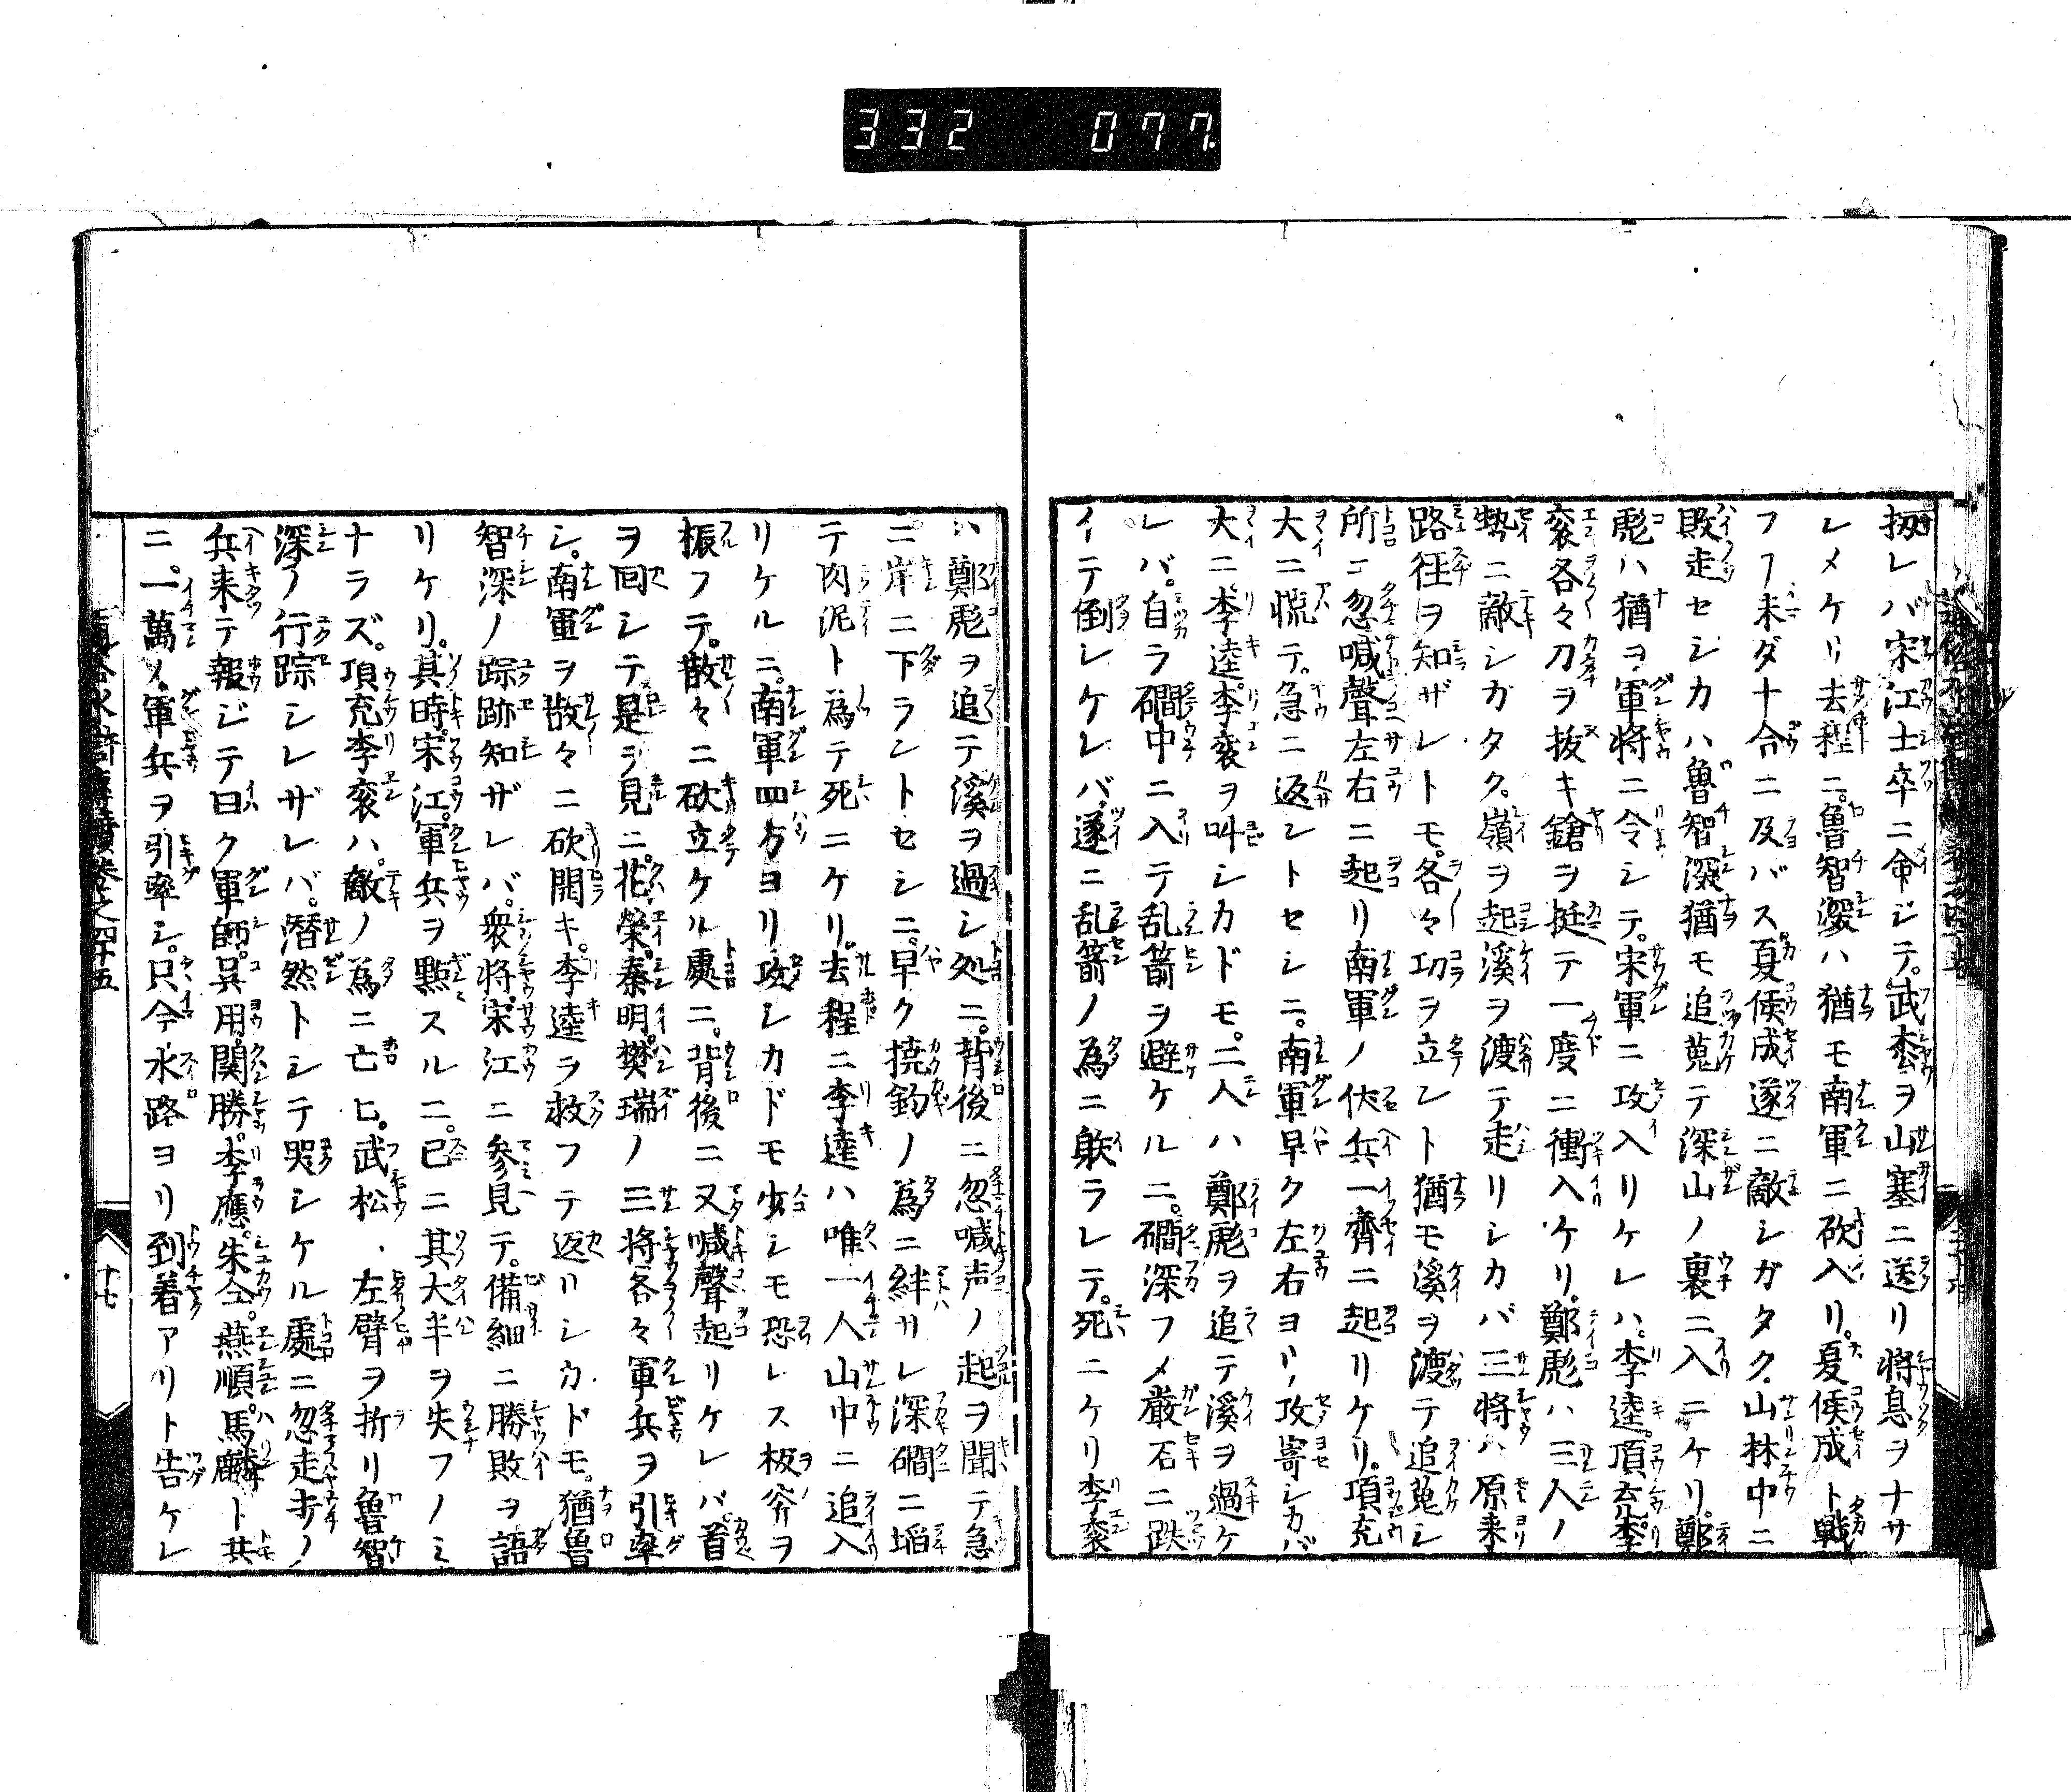 332 077
扨レバ宋江士卒ニ命ジテ。武松ヲ山塞ニ送リ將息ヲナサ
レメケリ去程ニ。魯智深ハ猶モ南軍ニ砍入リ。夏候成ト戰
フフ未ダ十合ニ及バス。夏候成遂ニ敵シガタク。山林中ニ
敗走セシカハ魯智深猶モ追蒐テ深山ノ裏ニ入ニケリ。鄭
彪ハ猶ヲ。軍将ニ令シテ。宋軍ニ攻入リケレハ。李逵。項充李
衮各々刀ヲ抜キ鎗ヲ挺テ一度ニ衝入ケリ。鄭彪ハ三人ノ
勢ニ敵シガタク。嶺ヲ起溪ヲ渡テ走リシカバ三将ハ原来
路径ヲ知ザレトモ。各々功ヲ立ント猶モ溪ヲ渡テ追蒐シ
所ニ忽喊聲左右ニ起リ南軍ノ伏兵一齊ニ起リケリ。項充
大ニ慌テ。急ニ返ントセシニ。南軍早ク左右ヨリ攻寄シカバ
大ニ李逵。李衮ヲ叫シカドモ。二人ハ鄭彪ヲ追テ溪ヲ過ケ
レバ。自ラ磵中ニ入テ乱箭ヲ避ケルニ。磵深フメ嚴石ニ跌
イテ倒レケレバ。遂ニ乱箭ノ為ニ躲ラレテ。死ニケリ李衮
ハ鄭彪ヲ追テ溪ヲ過シ処ニ。背後ニ忽喊声ノ起ヲ聞テ急
ニ岸ニ下ラントセシニ。早ク撓鈎ノ為ニ絆サレ深磵ニ堦
テ肉泥ト為テ死ニケリ。去程ニ李逵ハ唯一人山中ニ追入
リケルニ。南軍四方ヨリ攻シカドモ少シモ恐レス板斧ヲ
振フテ。散々ニ砍立ケル處ニ。背後ニ又喊聲起リケレバ。首
ヲ囘シテ是ヲ見ニ。花榮。秦明。樊瑞ノ三将各々軍兵ヲ引率
シ。南軍ヲ散々ニ砍開キ。李逵ヲ救フテ返リシカドモ。猶魯
智深ノ踪跡知ザレバ。衆将宋江ニ参見テ。備細ニ勝敗ヲ語
リケリ。其時。宋江。軍兵ヲ點スルニ。已ニ其大半ヲ失フノミ
ナラズ。項充李衮ハ。敵ノ為ニ亡ヒ。武松、左臂ヲ折リ魯智
深ノ行踪シレザレバ。潜然トシテ哭シケル處ニ忽走歩ノ
兵来テ報ジテ曰ク軍師。呉用。関勝。李應。朱仝。燕順。馬麟ト共
ニ。一萬ノ軍兵ヲ引率シ。只今水路ヨリ到着アリト告ケレ
十七